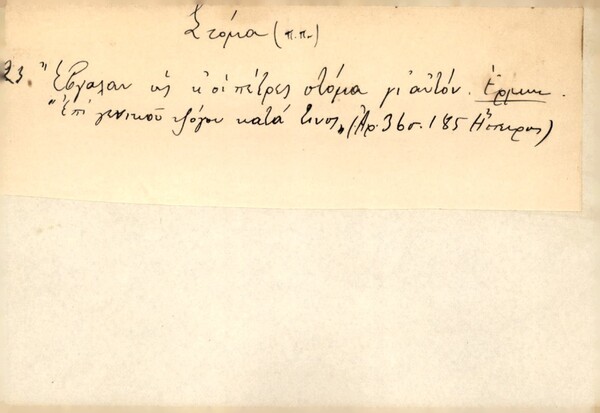 Στόμα (π.π.)
23. "Έβγαλαν ὡς κ' οἱ πέτρες στόμα γι' αὐτόν. Ἑρμην.
"Ἐπί γενικοῦ ψόγου κατά τινος. (Ἀρ. 36 σ. 185 Ἤπειρος)